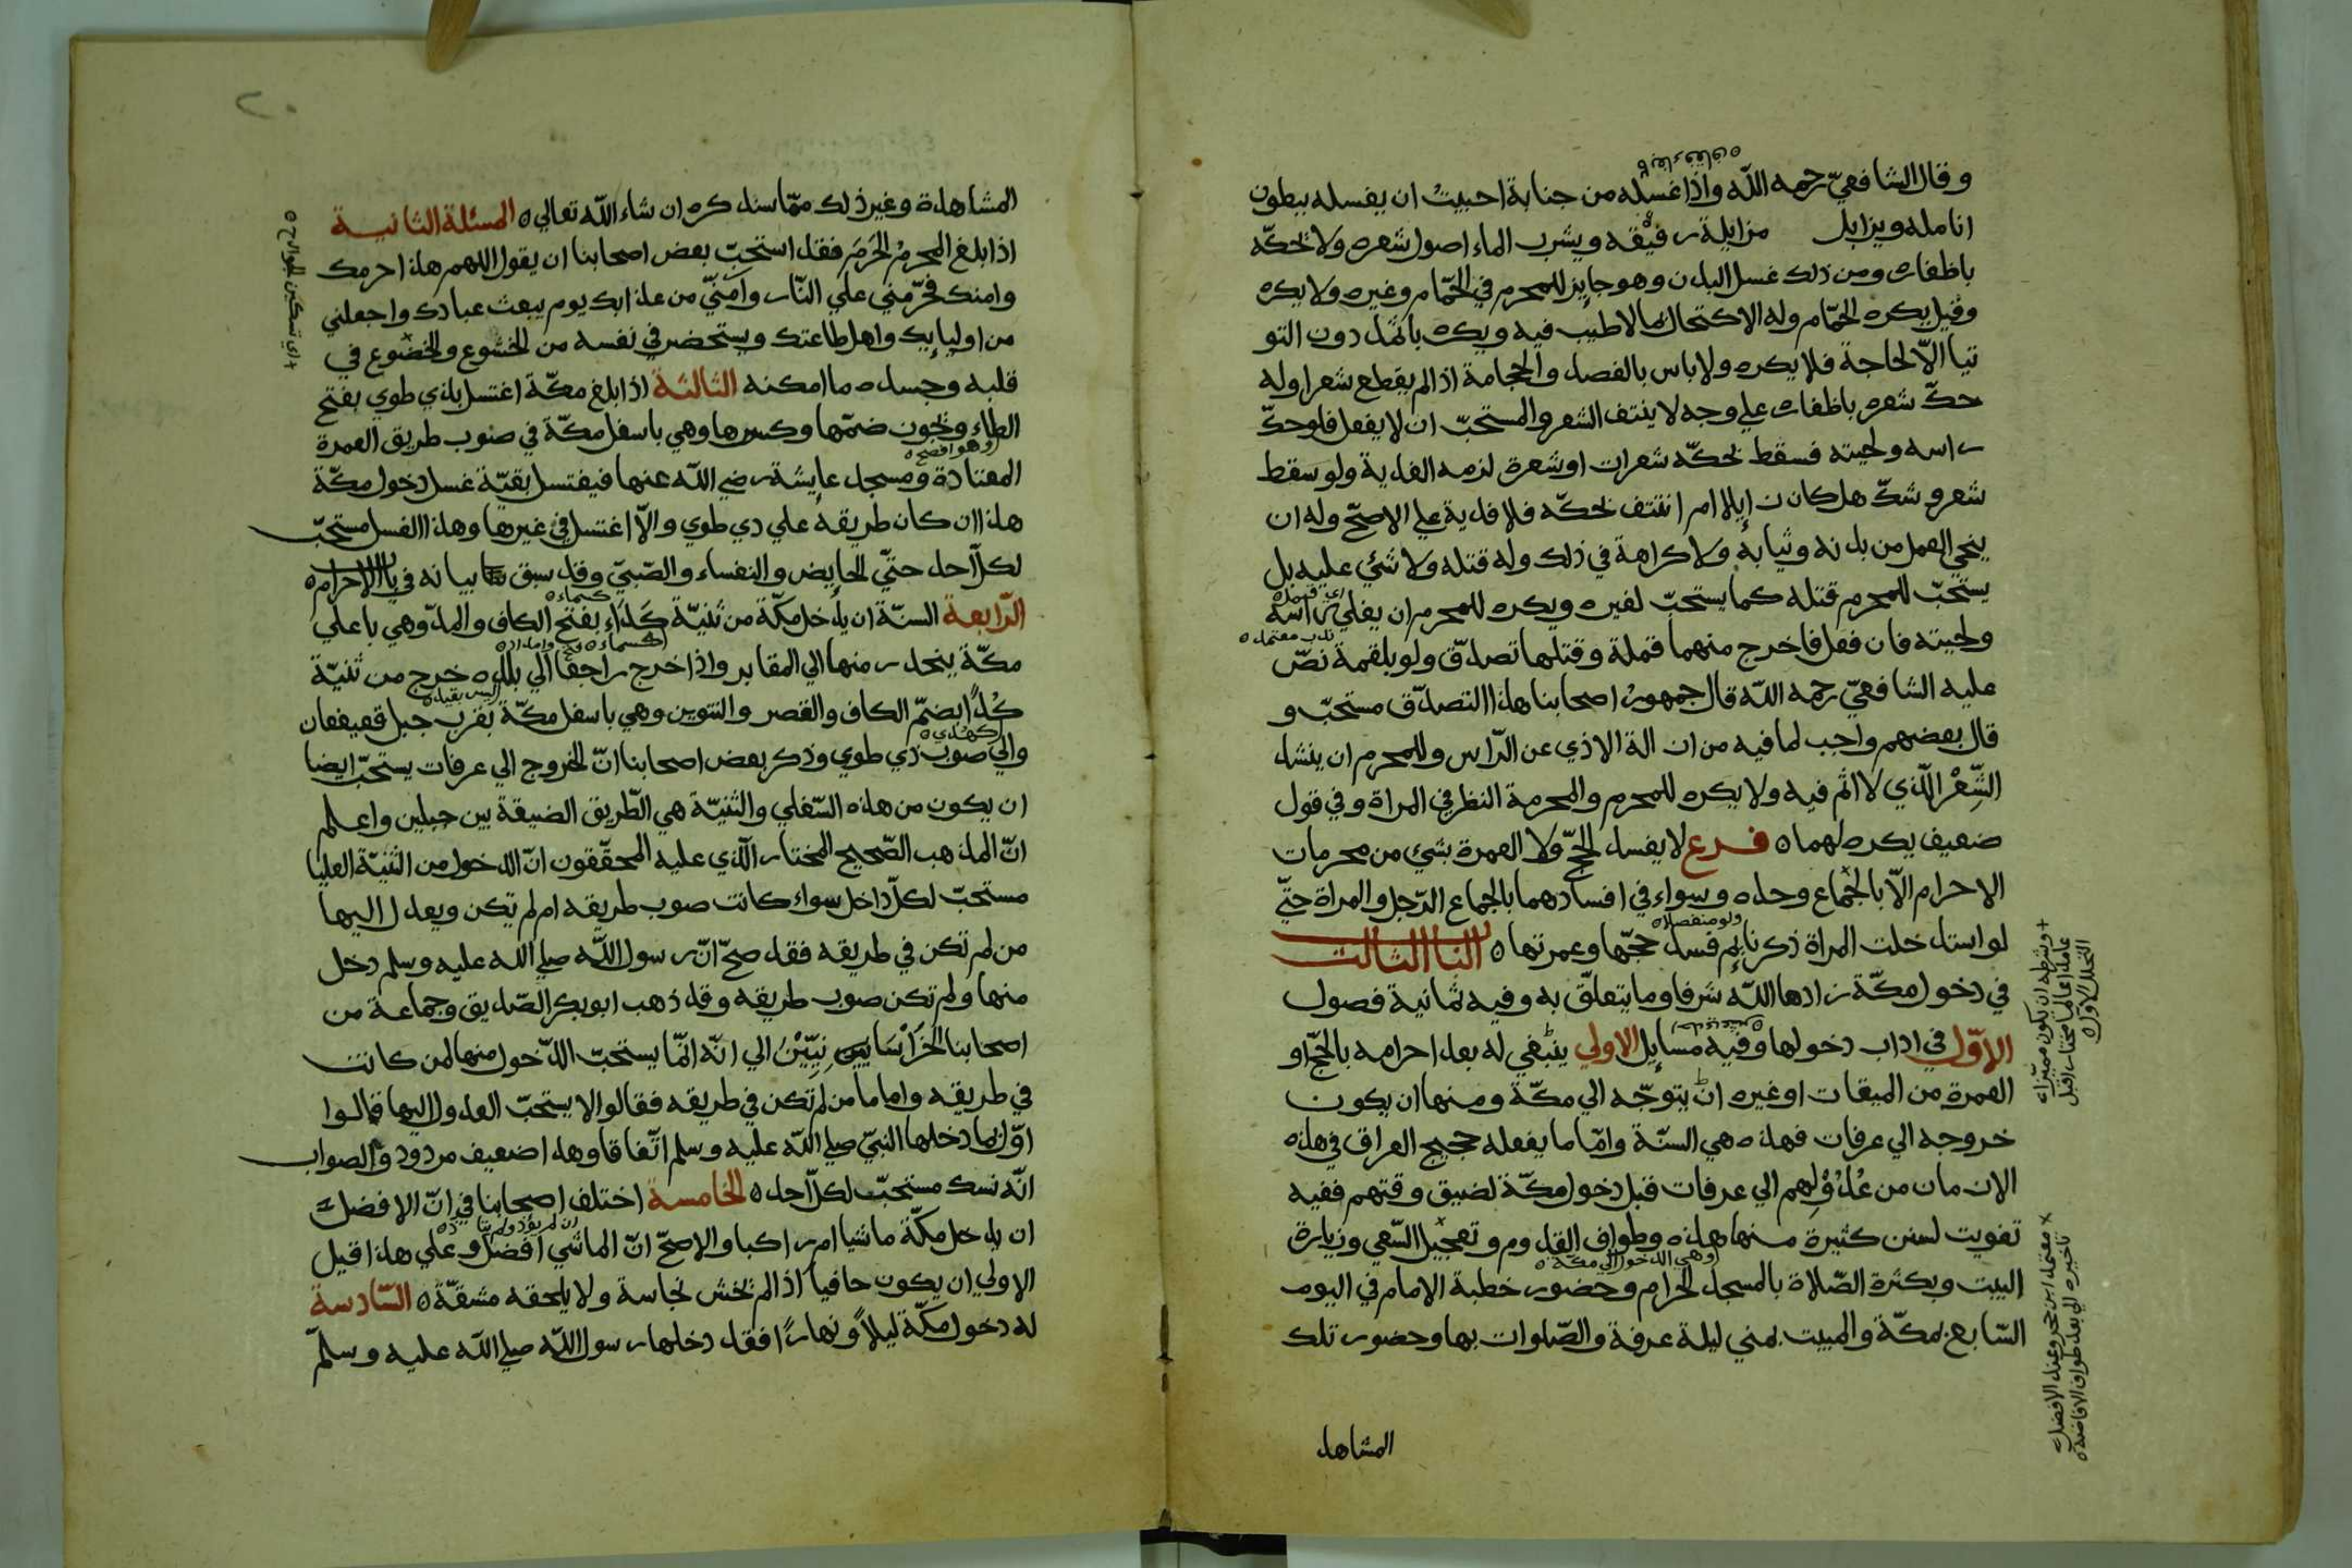 وقال الشافعيّ رحمه اللّه واذا غسله من جنابة احببت ان يغسله ببطون
انامله ويزايل مزايلة رفيقه ويشرب الماء اصول شعره ولا يحكّه
باظفاره ومن ذلك غسل البدن وهو جايز للمحرم في الحمّام وغيره ولا يكره
وقيل يكره الحمّام وله الاكتحال بما لا طيب فيه ويكره بالاثمد دون التو
تيا الاّ لحاجة فلا يكره ولا باس بالفصد والحجامة اذا لم يقطع شعرا وله
حكّ شعره باظفاره علي وجه لا ينتف الشعر والمستحبّ ان لا يفعل فلو حكّ
راسه ولحيته فسقط بحكّه شعرات او شعرة لزمه الفدية ولو سقط
شعر وشكّ هل كان زايلا ام انتتف بحكّه فلا فدية علي الاصحّ وله ان
ينحي القمل من بدنه وثيابه ولا كراهة في ذلك وله قتله ولا شئ عليه بل
يستحبّ للمحرم قتله كما يستحبّ لغيره ويكره للمحرم ان يفلي راسه
ندب معتمد
ولحيته فان فعل فاخرج منهما قملة وقتلها تصدّق ولو بلقمة نصّ
عليه الشافعيّ رحمه اللّه قال جمهور اصحابنا هذا التصدّق مستحبّ و
قال بعضهم واجب لما فيه من ازالة الاذي عن الرّاس وللمحرم ان ينشد
الشِّعْر الّذي لا اثم فيه ولا يكره للمحرم والمحرمة النظر في المراة وفي قول
ضعيف يكره لهما ه فرع لا يفسد الحجّ ولا العمرة بشئ من محرمات
الاحرام الاّ بالجماع وحده وسواء في افسادهما بالجماع الرّجل والمراة حتّي
ولو منفصلا
لو استدخلت المراة ذكر نايم فسد حجّها وعمرتها ه الباب الثالث
في دخول مكّة زادها اللّه شرفا وما يتعلّق به وفيه ثمانية فصول
الاوّل في اداب دخولها وفيه مسايل الاولي ينبغي له بعد احرامه بالحجّ او
العمرة من الميقات او غيره ان يتوجّه الي مكّة ومنها ان يكون
خروجه الي عرفات فهذه هي السنّة وامّا ما يفعله حجيج العراق في هذه
الازمان من عُدُوْلِهم الي عرفات قبل دخول مكّة لضيق وقتهم ففيه
تفويت لسنن كثيرة منها هذه وطواف القدوم وتعجيل السّعي وزيارة
وهي الدخول الي مكة
البيت وبكثرة الصّلاة بالمسجد الحرام وحضور خطبة الامام في اليوم
السّابع بمكّة والمبيت بمني ليلة عرفة والصّلوات بها وحضور تلك
المشاهد
وشرطه ان يكون مميّزا
عامدا عالما مختارا قبل
التحلل الاول
معتمد ابن حجر وعند الافضل
تاخيره الي بعد طواف الافاضة
المشاهدة وغير ذلك ممّا سنذكره ان شاء اللّه تعالي ه المسئلة الثانية
اذا بلغ المحرمُ الحَرَمَ فقد استحبّ بعض اصحابنا ان يقول اللهم هذا حرمك
وامنك فحرّمني علي النّار وآمنّي من عذابك يوم يبعث عبادك واجعلني
من اوليايك واهل طاعتك ويستحضر في نفسه من الخشوع والخضوع في
قلبه وجسده ما امكنه الثالثة اذا بلغ مكّة اغتسل بذي طوي بفتح
الطاء ويجوز ضمّها وكسرها وهي باسفل مكّة في صوب طريق العمرة
وهو افصح
المعتادة ومسجد عايشة رضي اللّه عنها فيغتسل بقيّة غسل دخول مكّة
هذا ان كان طريقه علي ذي طوي والاّ اغتسل في غيرها وهذا الغسل مستحبّ
لكلّ احد حتّي الحايض والنفساء والصّبيّ وقد سبق بيانه في باب الاحرام ه
كسماء
الرّابعة السنّة ان يدخل مكّة من ثنيّة كَدَاء بفتح الكاف والمدّ وهي باعلي
مكّة ينحدر منها الي المقابر واذا خرج راجعا الي بلده خرج من ثنيّة
كُدًا بضمّ الكاف والقصر والتنوين وهي باسفل مكّة بقرب جبل قعيقعان
كهدي
والي صوب ذي طوي وذكر بعض اصحابنا انّ الخروج الي عرفات يستحبّ ايضا
ان يكون من هذه السّفلي والثنيّة هي الطّريق الضيقة بين جبلين واعلم
انّ المذهب الصّحيح المختار الّذي عليه المحقّقون انّ الدخول من الثنيّة العليا
مستحبّ لكلّ داخل سواء كانت صوب طريقه ام لم تكن ويعدل اليها
من لم تكن في طريقه فقد صحّ انّ رسول اللّه صلي الله عليه وسلم دخل
منها ولم تكن صوب طريقه وقد ذهب ابو بكر الصّديق وجماعة من
اصحابنا الخَرَاسَانِيّيْن الي انّه انّما يستحبّ الدّخول منها لمن كانت
في طريقه واما من لم تكن في طريقه فقالوا لا يستحبّ العدول اليها قالوا
وانّما دخلها النبيّ صلي اللّه عليه وسلم اتّفاقا وهذا ضعيف مردود والصواب
انّه نسك مستحبّ لكلّ احد ه الخامسة اختلف اصحابنا في انّ الافضل
ان يدخل مكّة ماشيا ام راكبا والاصحّ انّ الماشي افضل وعلي هذا قيل
الاولي ان يكون حافيا اذا لم يخش نجاسة ولا يلحقه مشقّة ه السّادسة
له دخول مكّة ليلاً ونهاراً فقد دخلها رسول اللّه صلي اللّه عليه وسلّم
اي تسكين الجوارح